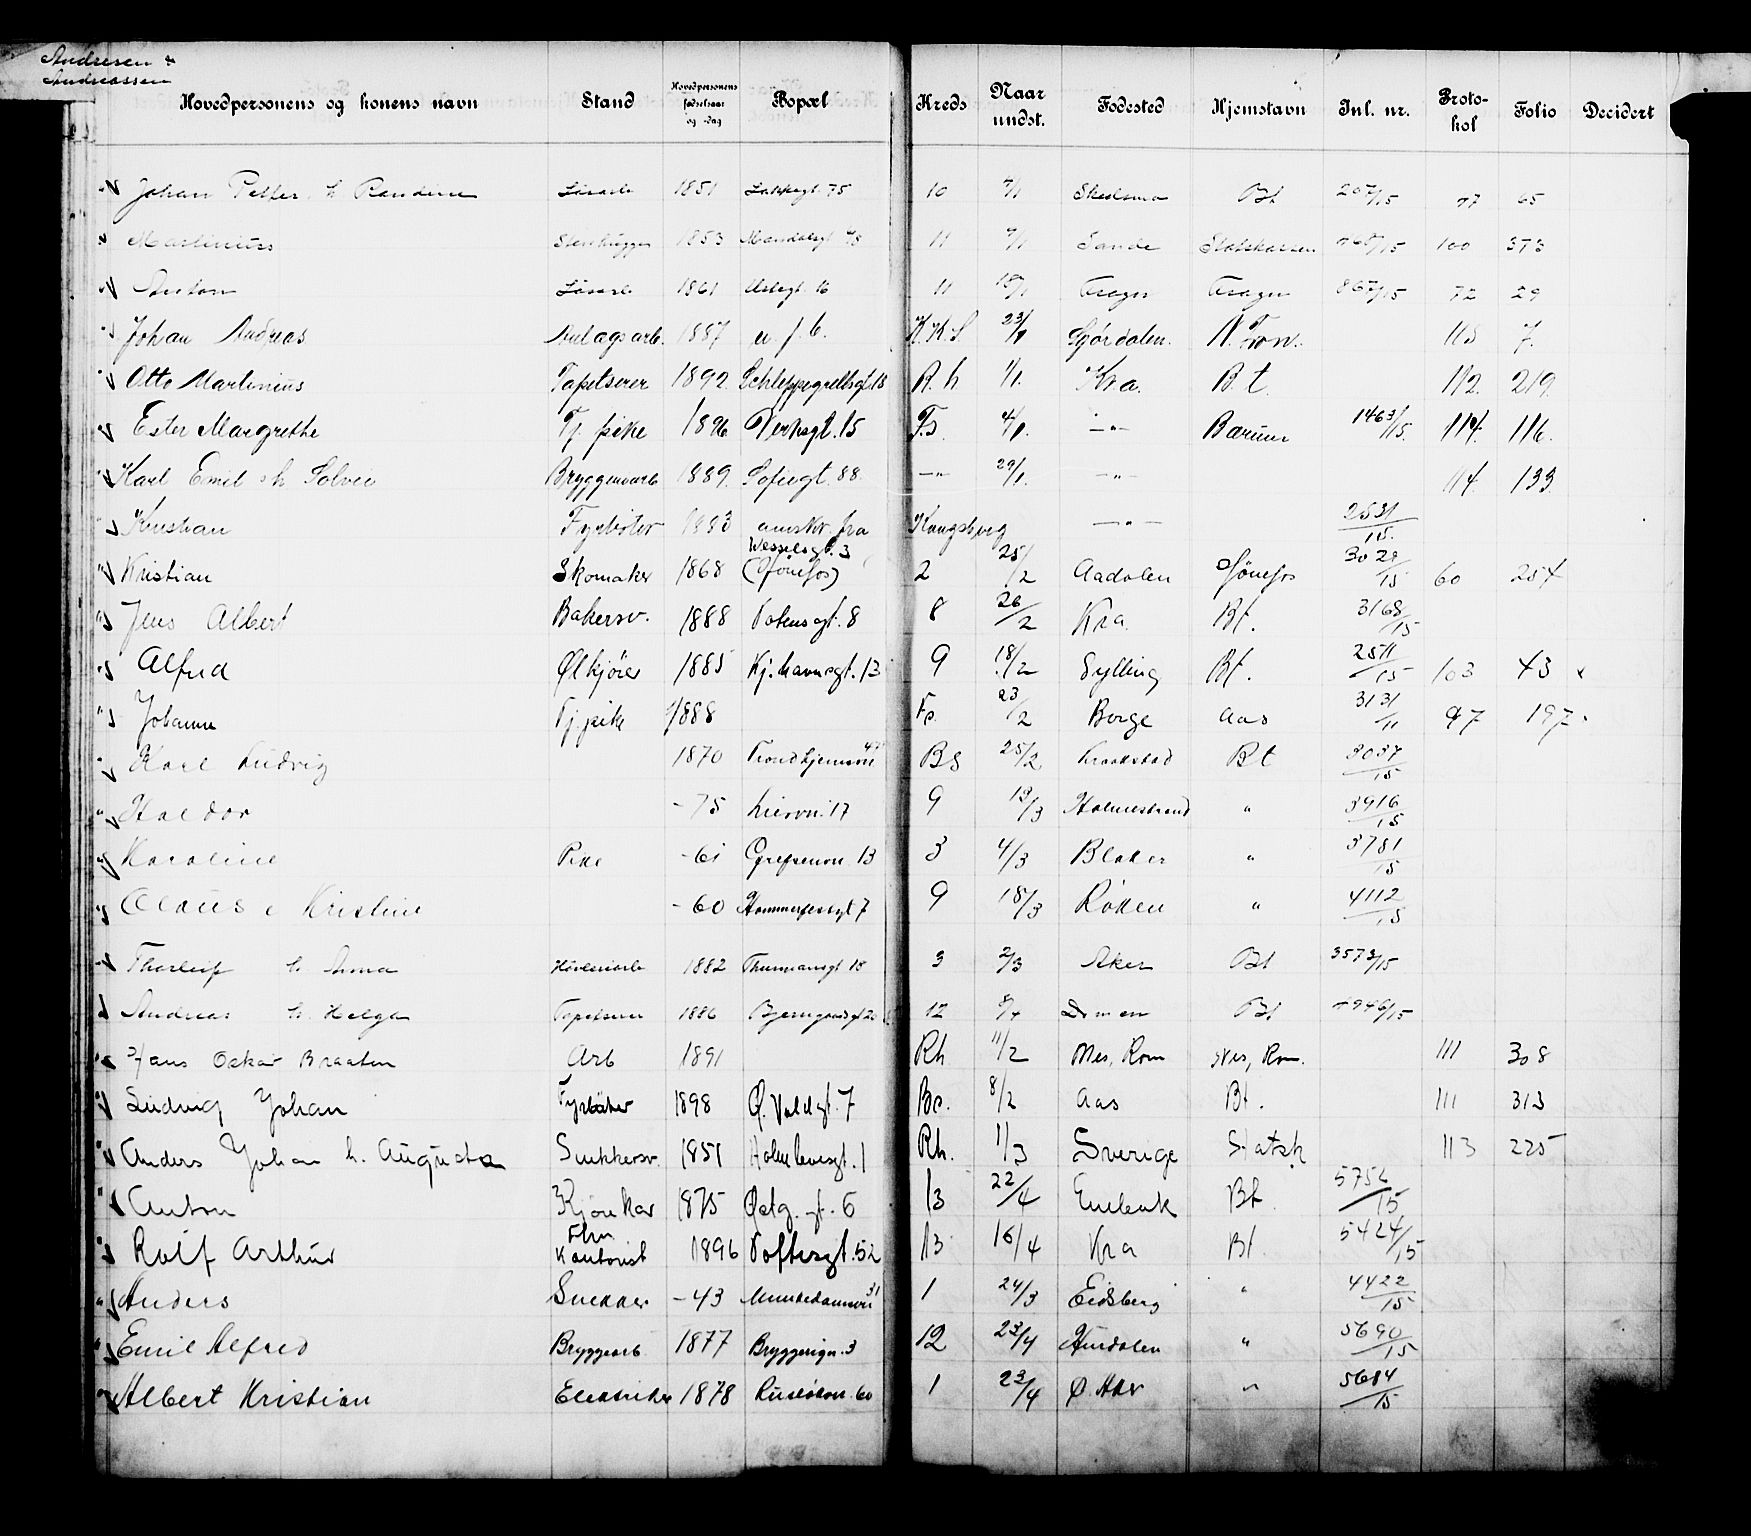 Andresen &
Andreassen
Hovedpersonens og konens navn Stand Hovedpersonens fødselsaar og -dag Bopæl Kreds Naar undst. Fødested Hjemstavn Inl. nr. Protokol Folio Decidert
Johan Petter h Randine Løsarb 1851 Lakkegt 75 10 Skedsmo Bt 77 65
Martinius Stenhugger 1853 Mandalsgt 11 Sande Statskassen 100 373
Anton Løsarb 1861 16 11 72 29
Johan Andreas Anlagsarb. 1887 u. f. b. K.K.S 23/1 N. Fron. 115 7.
Otto Martinius Tapetserer 1892 Schleppegrellsgt. 18 R.h 1/1. Kra. B.t. 112. 219.
Ester Margrethe Tj. pike 1896 Verksgt. 15 F.s. 4/1. —"— Bærum 1463/15. 114. 116.
Karl Emil h Solvei Bryggeriarb 1889. Sofiegt. 88. —"— 29/1. —"— 114. 133.
Kristian Fyrbøter 1883 amskr. fra Kongsberg —"— 2531/15.
Kristian Skomaker 1868 Wesselsgt. 3 (Hønefos) 2 25/2 Aadalen Hønefos 3029/15 60 254
Jens Albert Bakersv. 1888 Totensgt. 8 8 26/2 Kra. Bt. 3168/15
Alfred Ølkjører 1885 Kj.havnsgt. 13 9 18/2 Sylling Bt. 2511/15 103 43 x
Johanne Tj.pike 1888 Fs. 23/2 Borge Aas 3131/11 97 197.
Karl Ludvig 1870 Trondhjemsvn 47 Bs 25/2 Kraakstad Bt 3037/15
Haldor -75 Liervn. 17 9 13/3 Holmestrand " 3916/15
Karoline Pike -61 Grefsenvn. 13 3 4/3 Blaker " 3781/15
Claus e Kristine -60 Hammerfestgt 7 9 18/3 Røken " 4112/15
Thorleif h. Anna Høvleriarb 1882 Thurmannsgt 18 3 2/3 Aker Bt 3573/15
Andreas h. Helga Tapetserer 1886 Bjerregaardsgt 20 12 Dr men Bt 4946/15
Hans Oskar Braaten Arb 1891 Rh 11/2 Nes, Rom Nes, Rom. 111 308
Ludvig Johan Fyrbøter 1898 Ø. Voldgt. 7 Bs. 8/2 Aas Bt. 111 313
Anders Johan h. Augusta Snekkersv. 1851 Holmlevigt. 1 Rh. 1/3 Sverige Statsk 113 225
Anton Kjørekar 1875 Østg. gt. 6 13 22/4 Enebak Bt. 5756/15
Rolf Arthur Elm Kontorist 1896 Toftesgt. 52 13 16/4 Kra Bt 5424/15
Anders Snekker -43 Munkedamsvn 31 1 24/3 Eidsberg " 4422/15
Emil Alfred Bryggearb 1877 Bryggerign. 3 12 23/4 Hurdalen " 5690/15
Albert Kristian Elektriker 1878 Ruseløkvn. 60 1 23/4 Ø. Aker " 5684/15